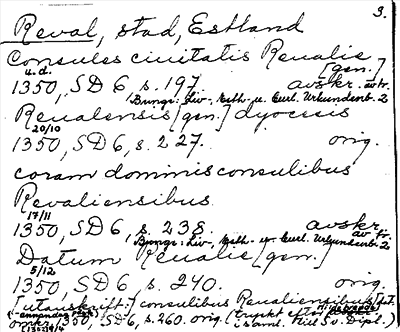 3.
Reval, stad, Estland
Consules ciuitatis Reualie [gen.]
u.d.
1350, SD 6, s. 197. avskr. av tr.
Bunge: Liv-, Esth- u. Curl. Urkundenb. 2
Reualensis [gen.] dyocesis
20/10
1350, SD 6, s. 227. orig.
coram dominis consulibus
Revaliensibus
17/11
1350, SD 6, s. 238. avskr. av tr.
Bunge: Liv-, Esth- u. Curl. Urkundenb. 2
Datum Reualie [gen.]
5/12
1350, SD 6, s. 240. orig.
[utanskrift:] consulibus Reualiensibus
1350, SD 6, s. 260. orig. (tryckt efter
i saml. till Sv. Dipl.)